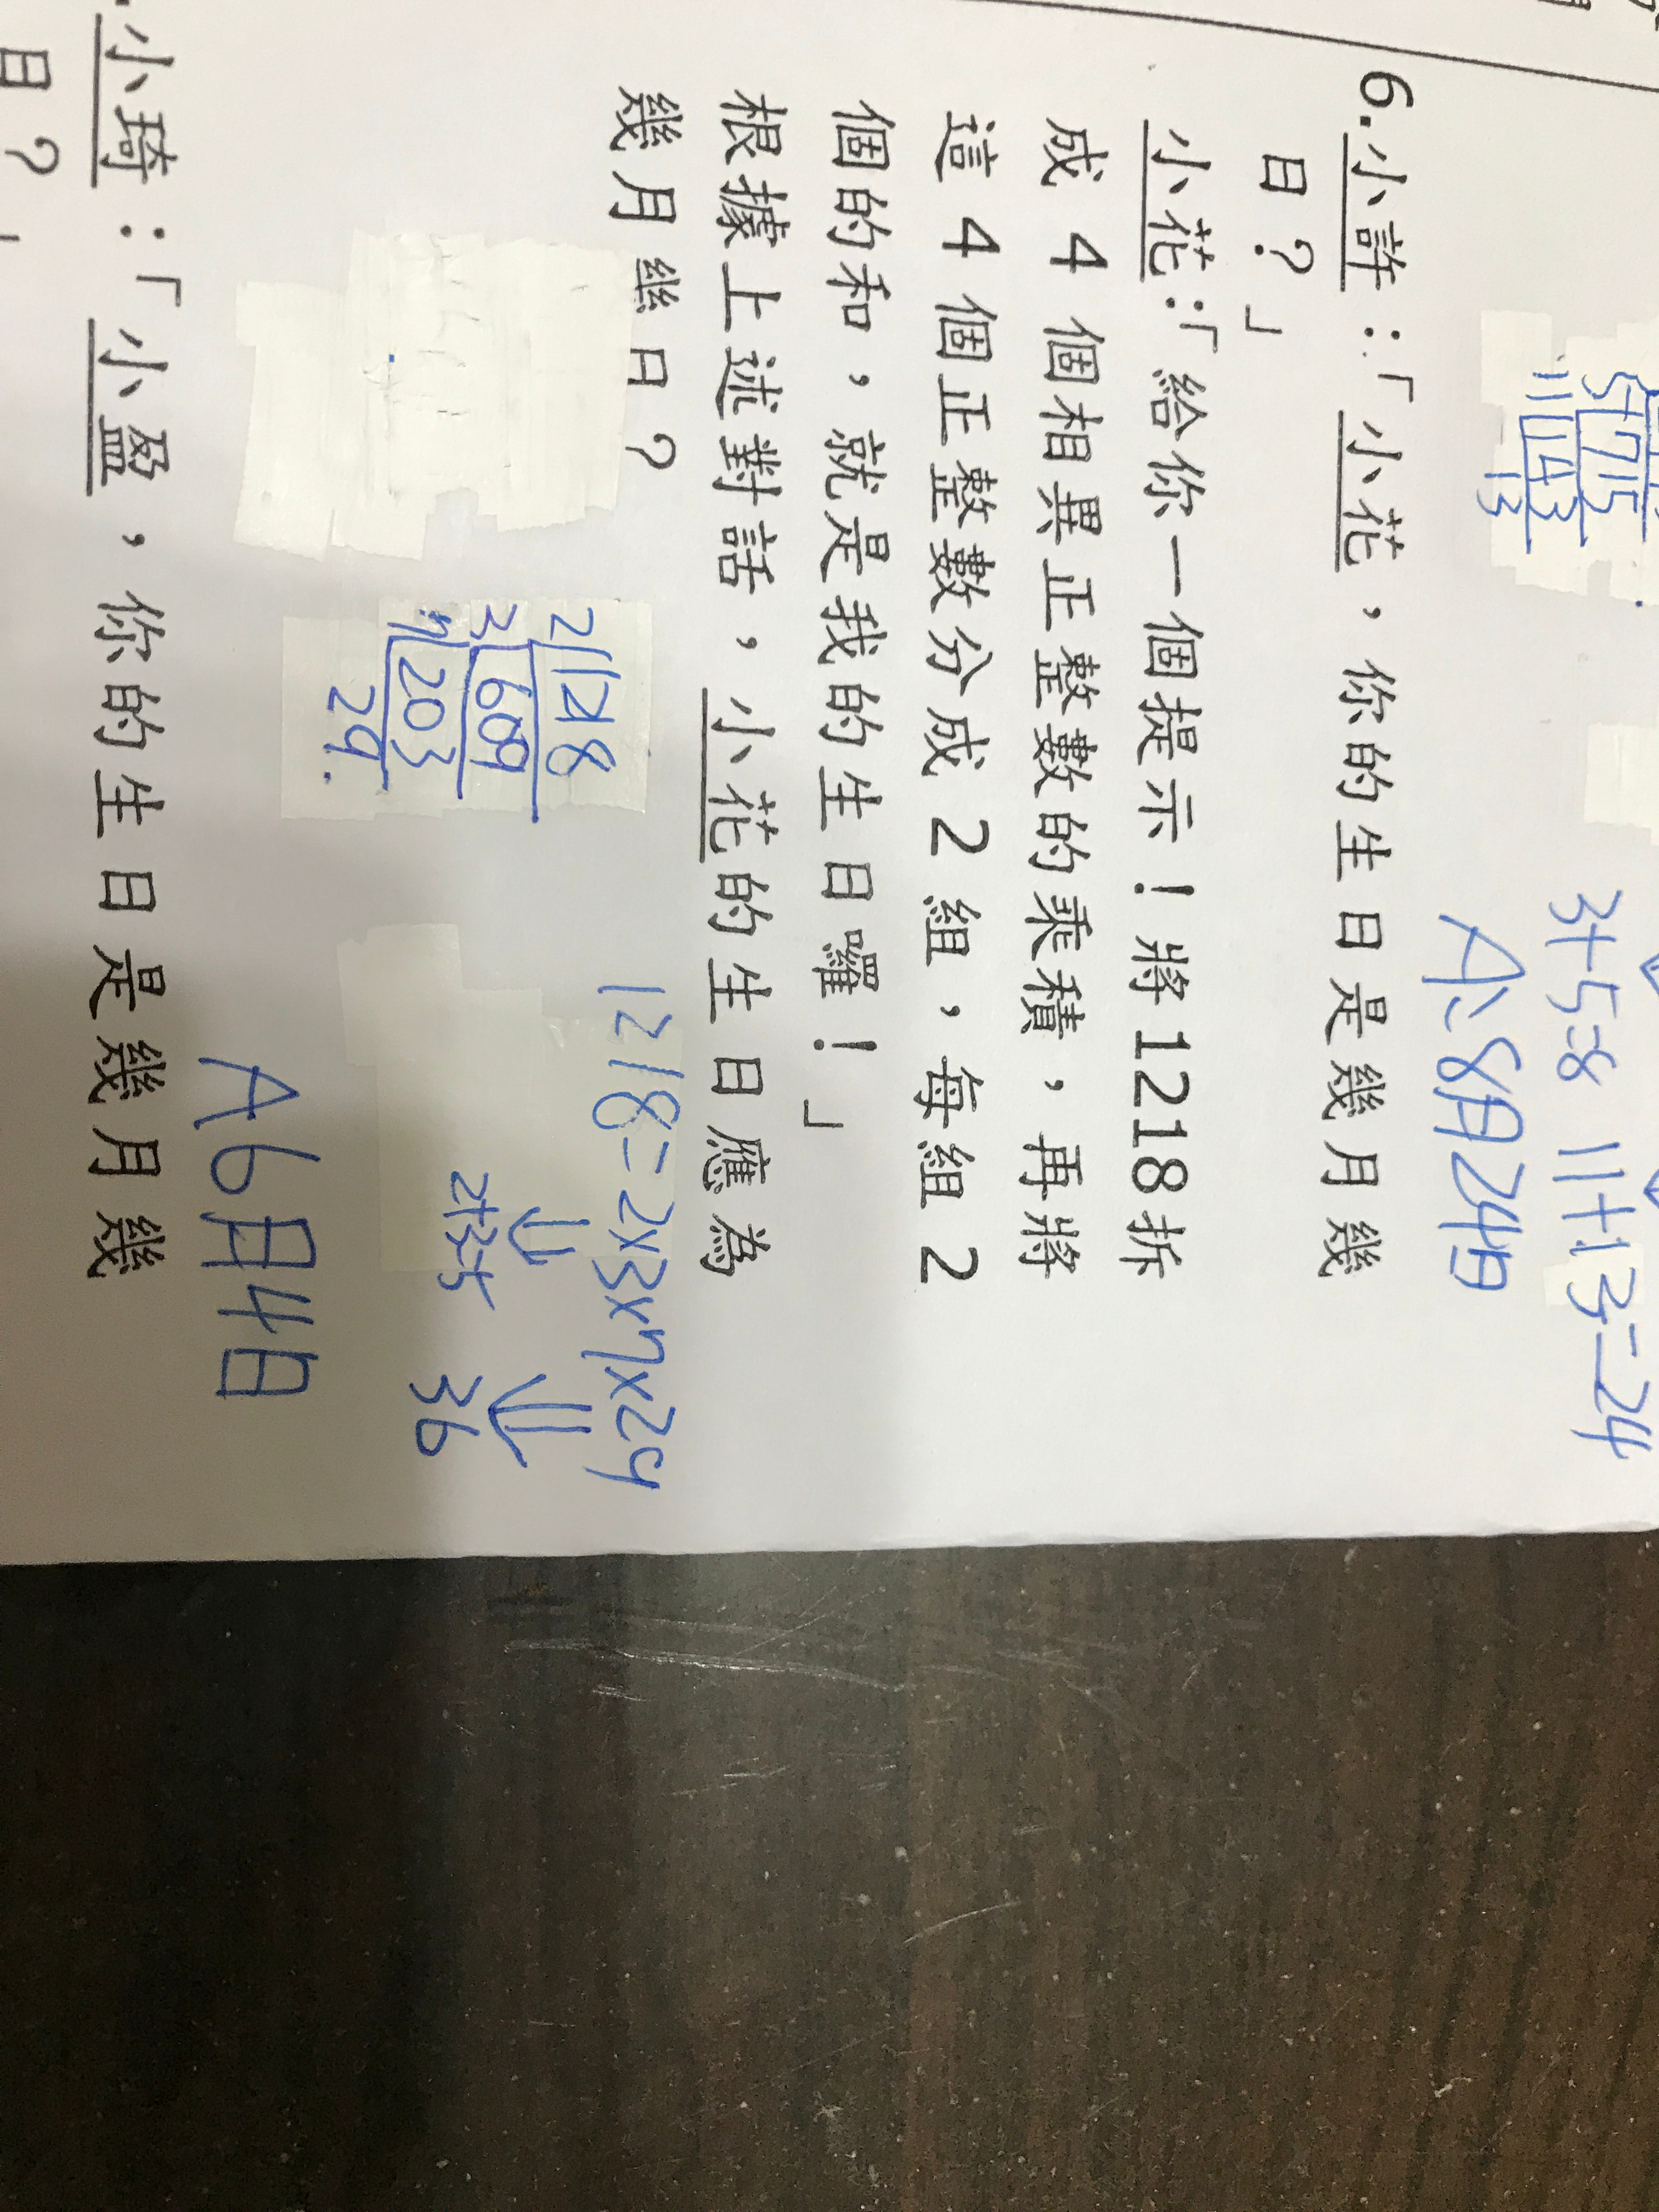 5 715
11 143
13
3+5=8 11+13=24
A:8月24日
6.小許：「小花，你的生日是幾月幾
日？」
小花：「給你一個提示！將1218拆
成 4 個相異正整數的乘積，再將
這 4 個正整數分成 2 組，每組 2
個的和，就是我的生日囉！」
根據上述對話，小花的生日應為
幾月幾日？
2 1218
3 609
7 203
29.
1218=2×3×7×29
2+3=5 36
A 6月4日
小琦：「小盈，你的生日是幾月幾
日？」